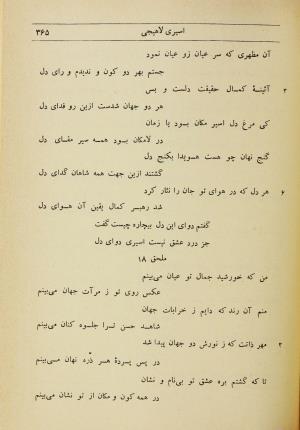 اسیری لاهیجی ۳۶۵
آن مظهری که سر عیان زو عیان نمود
جستم بهر دو کون و ندیدم و رای دل
۳ آئینهٔ کمال حقیقت دلست و بس
هر دو جهان شدست ازین رو فدای دل
کی مرغ دل اسیر مکان بود یا زمان
در لامکان بود همه سیر فضای دل
گنج نهان چو هست هویدا بکنج دل
گشتند ازین جهت همه شاهان گدای دل
۶ هر دل که در هوای تو جان را نثار کرد
شد رهبر کمال یقین آن هوای دل
گفتم دوای این دل بیچاره چیست گفت
جز درد عشق نیست اسیری دوای دل
ملحق ۱۸
من که خورشید جمال تو عیان می‌بینم
عکس روی تو ز مرآت جهان می‌بینم
منم آن رند که دایم ز خرابات جهان
شاهد حسن ترا جلوه کنان می‌بینم
۳ مهر ذاتت که ز نورش دو جهان پیدا شد
در پس پردهٔ هر ذره نهان می‌بینم
تا که گشتم بره عشق تو بی‌نام و نشان
در همه کون و مکان از تو نشان می‌بینم